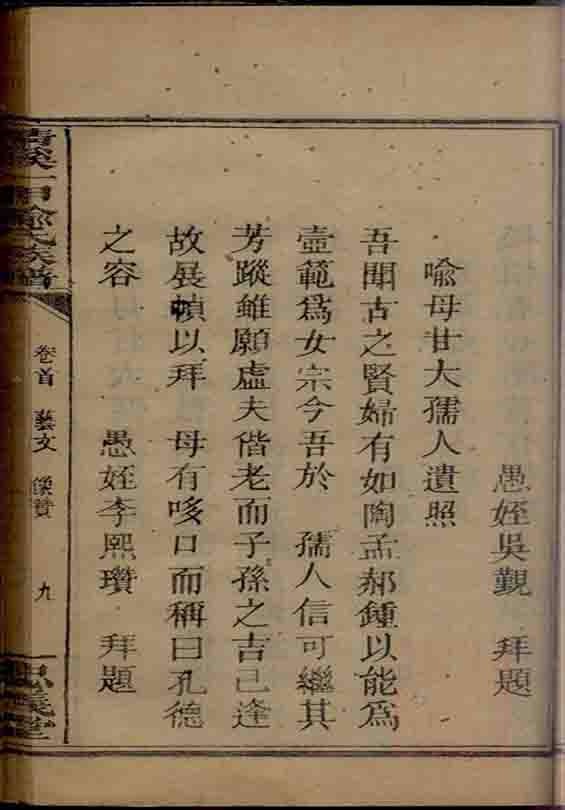 愚姪吳覲　拜題
喩母甘大孺人遺照
吾聞古之賢婦有如陶孟郝鍾以能爲
壼範爲女宗今吾於　孺人信可繼其
芳蹤雖願虛夫偕老而子孫之吉已逢
故展幀以拜　母有哆口而稱曰孔德
之容　　愚姪李熙瓚　拜題
清溪一甲喩氏族譜
卷首　藝文　像贊　九
忠義堂